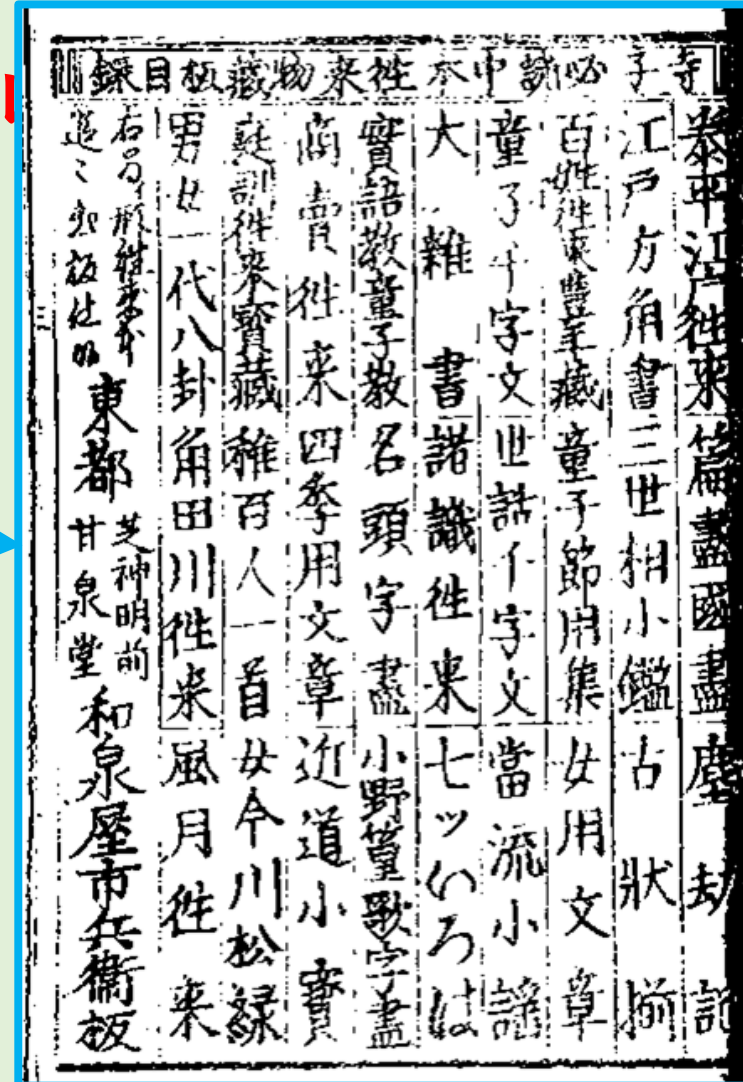 寺子必讀中本徃来物藏板目録
泰平江戸徃来 篇盡國盡 塵劫記
江戸方角書 三世相小鑑 古狀揃
百姓徃来豊年藏 童子節用集 女用文章
童子千字文 世話千字文 當流小謡
大雜書 諸識徃来 七ツいろは
實語教童子教 名頭字盡 小野篁歌字盡
商賣徃来 四季用文章 近道小寳
庭訓徃来寳藏 稚百人一首 女今川松緑
男女一代八卦 角田川徃来 風月徃来
右
追々出板仕候
東都
芝神明前
甘泉堂
和泉屋市兵衞板
三